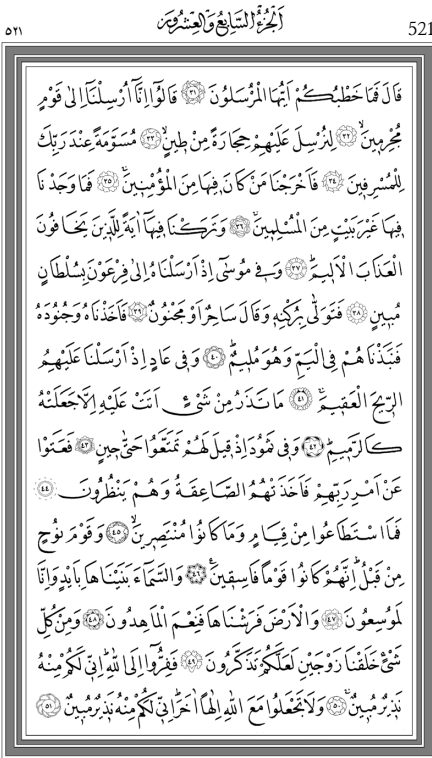 اَلْجُزْءُ السَّابِعُ وَالْعِشْرُونَ
٥٢١
521
قَالَ فَمَا خَطْبُكُمْ اَيُّهَا الْمُرْسَلُونَ ﴿٣١﴾ قَالُٓوا اِنَّٓا اُرْسِلْنَٓا اِلٰى قَوْمٍ
مُجْرِم۪ينَۙ ﴿٣٢﴾ لِنُرْسِلَ عَلَيْهِمْ حِجَارَةً مِنْ ط۪ينٍۙ ﴿٣٣﴾ مُسَوَّمَةً عِنْدَ رَبِّكَ
لِلْمُسْرِف۪ينَ ﴿٣٤﴾ فَاَخْرَجْنَا مَنْ كَانَ ف۪يهَا مِنَ الْمُؤْمِن۪ينَۚ ﴿٣٥﴾ فَمَا وَجَدْنَا
ف۪يهَا غَيْرَ بَيْتٍ مِنَ الْمُسْلِم۪ينَۚ ﴿٣٦﴾ وَتَرَكْنَا ف۪يهَٓا اٰيَةً لِلَّذ۪ينَ يَخَافُونَ
الْعَذَابَ الْاَل۪يمَۜ ﴿٣٧﴾ وَف۪ي مُوسٰٓى اِذْ اَرْسَلْنَاهُ اِلٰى فِرْعَوْنَ بِسُلْطَانٍ
مُب۪ينٍ ﴿٣٨﴾ فَتَوَلّٰى بِرُكْنِه۪ وَقَالَ سَاحِرٌ اَوْ مَجْنُونٌ ﴿٣٩﴾ فَاَخَذْنَاهُ وَجُنُودَهُ
فَنَبَذْنَاهُمْ فِي الْيَمِّ وَهُوَ مُل۪يمٌۜ ﴿٤٠﴾ وَف۪ي عَادٍ اِذْ اَرْسَلْنَا عَلَيْهِمُ
الرّ۪يحَ الْعَق۪يمَۚ ﴿٤١﴾ مَا تَذَرُ مِنْ شَيْءٍ اَتَتْ عَلَيْهِ اِلَّا جَعَلَتْهُ
كَالرَّم۪يمِۜ ﴿٤٢﴾ وَف۪ي ثَمُودَ اِذْ ق۪يلَ لَهُمْ تَمَتَّعُوا حَتّٰى ح۪ينٍ ﴿٤٣﴾ فَعَتَوْا
عَنْ اَمْرِ رَبِّهِمْ فَاَخَذَتْهُمُ الصَّاعِقَةُ وَهُمْ يَنْظُرُونَ ﴿٤٤﴾
فَمَا اسْتَطَاعُوا مِنْ قِيَامٍ وَمَا كَانُوا مُنْتَصِر۪ينَۙ ﴿٤٥﴾ وَقَوْمَ نُوحٍ
مِنْ قَبْلُۜ اِنَّهُمْ كَانُوا قَوْمًا فَاسِق۪ينَ۟ ﴿٤٦﴾ وَالسَّمَٓاءَ بَنَيْنَاهَا بِاَيْدٍ وَاِنَّا
لَمُوسِعُونَ ﴿٤٧﴾ وَالْاَرْضَ فَرَشْنَاهَا فَنِعْمَ الْمَاهِدُونَ ﴿٤٨﴾ وَمِنْ كُلِّ
شَيْءٍ خَلَقْنَا زَوْجَيْنِ لَعَلَّكُمْ تَذَكَّرُونَ ﴿٤٩﴾ فَفِرُّٓوا اِلَى اللّٰهِۜ اِنّ۪ي لَكُمْ مِنْهُ
نَذ۪يرٌ مُب۪ينٌۚ ﴿٥٠﴾ وَلَا تَجْعَلُوا مَعَ اللّٰهِ اِلٰهًا اٰخَرَۜ اِنّ۪ي لَكُمْ مِنْهُ نَذ۪يرٌ مُب۪ينٌ ﴿٥١﴾